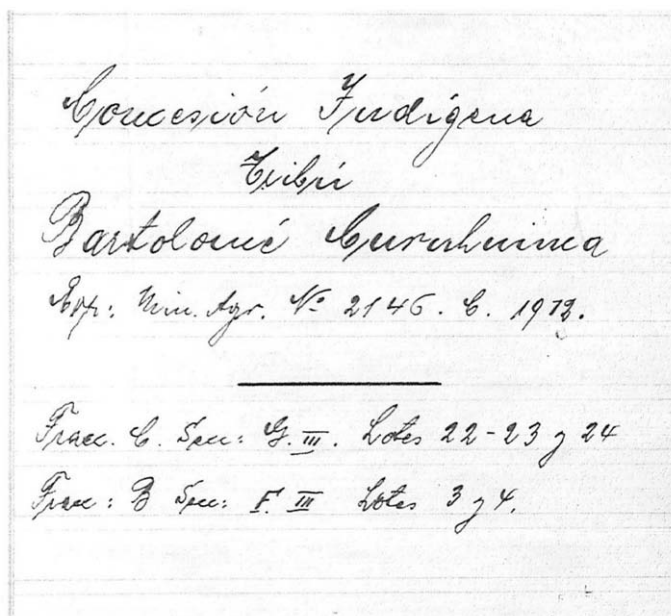 Concesión Indígena
Tribú
Bartolomé Curuhuinca
Exp: Min. Agr. Nº 2146. C. 1912.
Fracc. C. Secc: G. III. Lotes 22-23 y 24
Fracc: B Secc: F. III Lotes 3 y 4.